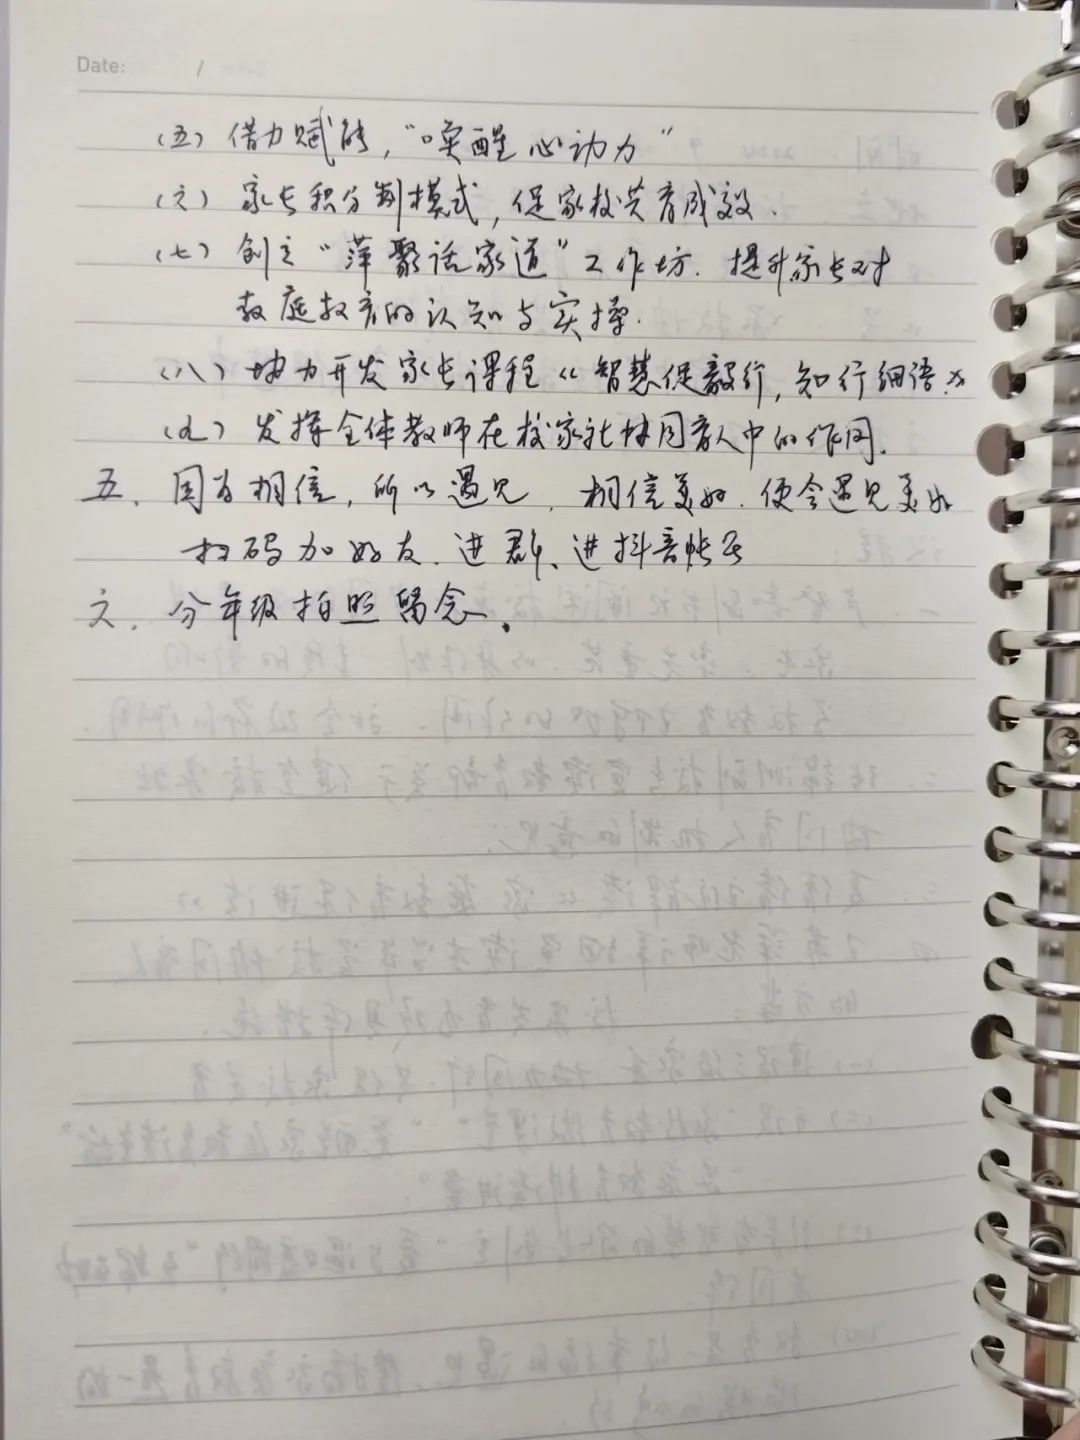 Date: /
（五）借力赋能，“唤醒心动力”
（六）家长积分制模式，促家校共育成效．
（七）创立“萍聚话家道”工作坊．提升家长对
教庭教育的认知与实操．
（八）协力开发家长课程《智慧促毅行，知行细语》
（九）发挥全体教师在校家社协同育人中的作用．
五．因为相信，所以遇见．相信美好．便会遇见美好
扫码加好友、进群、进抖音帐号
六．分年级拍照留念．